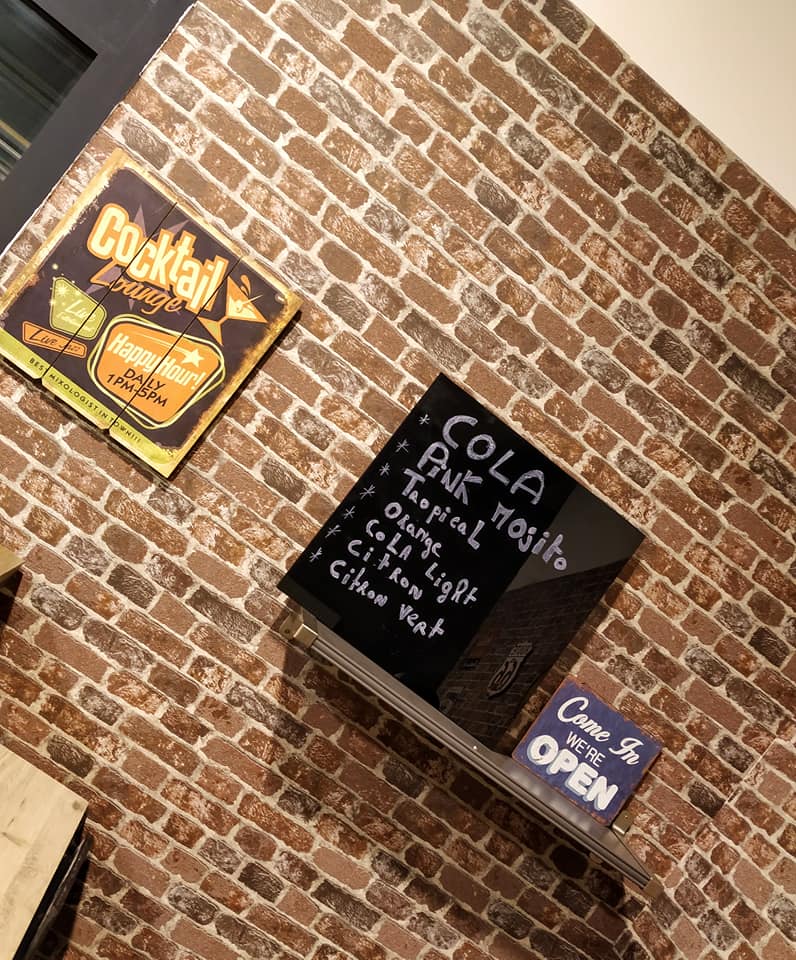 Cocktail
Lounge
Live
LIVE JAZZ
Happy Hour!
DAILY
1PM-5PM
BEST MIXOLOGIST IN TOWN!!!
* COLA
* PINK MOJito
* TROPICAL
* ORANGE
* COLA LIGHT
* CITRON
* CITRON VERT
Come In
WE'RE
OPEN